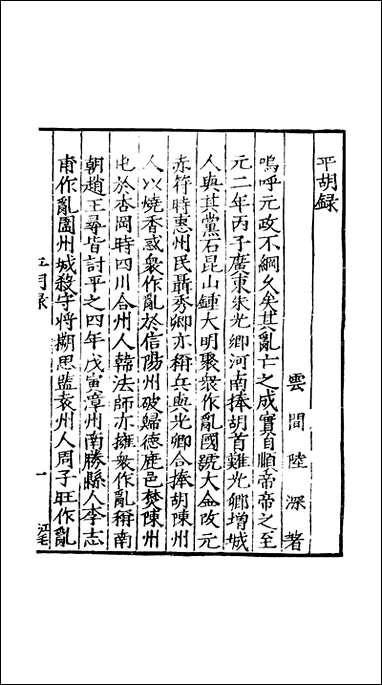 平胡録
雲間陸深著
嗚呼元政不綱久矣其亂亡之成實自順帝帝之至
元二年丙子廣東朱光卿河南捧胡首難光卿增城
人與其黨石昆山鍾大明聚衆作亂國號大金改元
赤符時惠州民聶秀卿亦稱兵與光卿合捧胡陳州
人以燒香惑衆作亂於信陽州破歸德鹿邑焚陳州
屯於杏岡時四川合州人韓法師亦擁衆作亂稱南
朝趙王尋皆討平之四年戊寅漳州南勝縣人李志
甫作亂圍州城殺守將搠思監袁州人周子旺作亂
平胡録
一